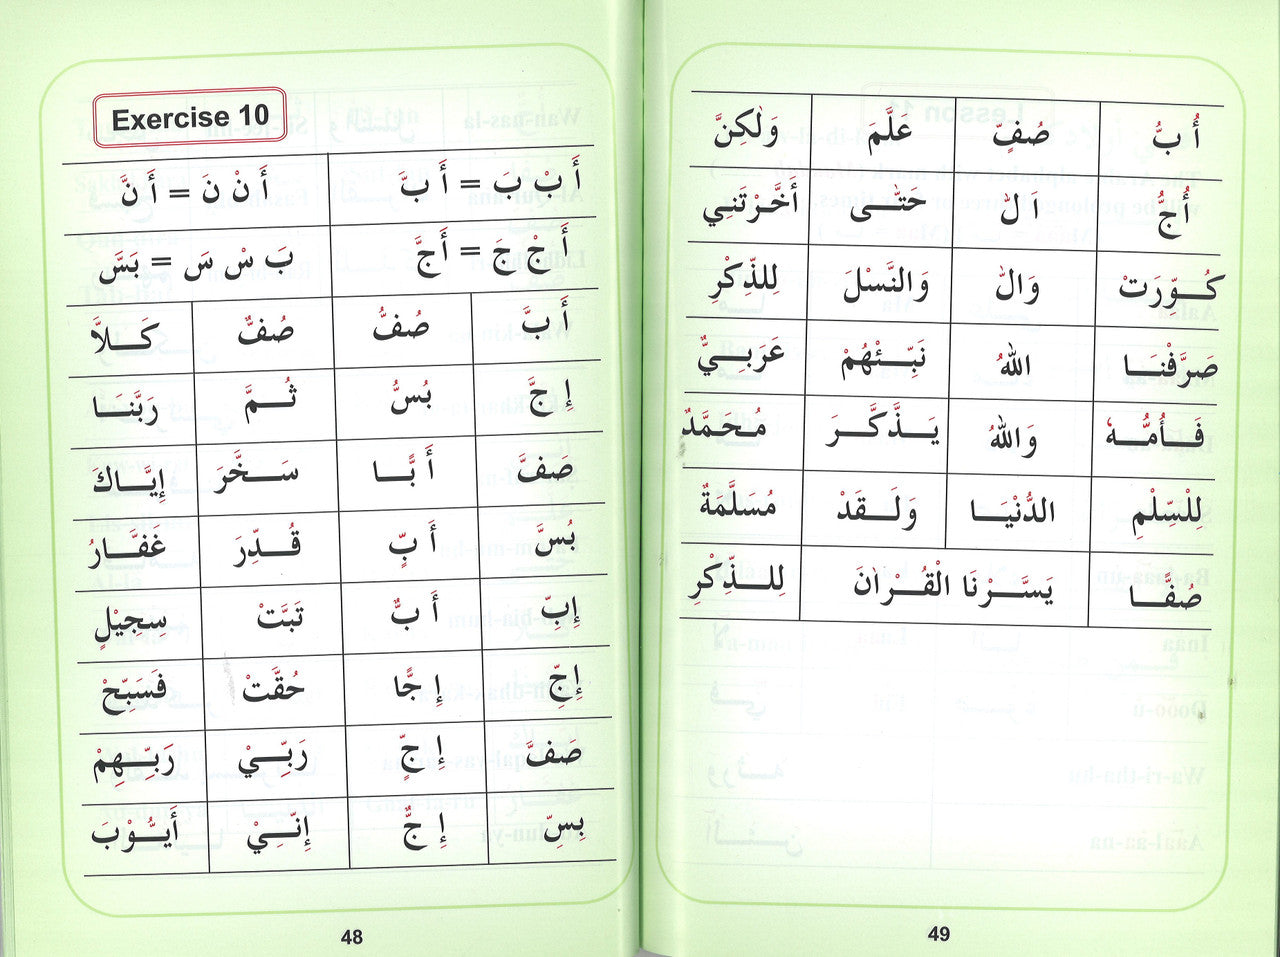 Exercise 10
أَ بْ بَ = أَ بَّ أَ نْ نَ = أَ نَّ
أَ جْ جَ = أَ جَّ بَ سْ سَ = بَسَّ
أَ بَّ صُفُّ صُفٌّ كَلاَّ
إِ جَّ بُسُّ ثُمَّ رَبَّنَا
صَفَّ أَ بًّا سَخَّرَ إِيَّاكَ
بُسَّ أَ بٍّ قُدِّرَ غَفَّارُ
إِبِّ أَ بٌّ تَبَّتْ سِجِيْلٍ
إِجِّ إِ جًّا حُقَّتْ فَسَبِّحْ
صَفَّ إِ جٍّ رَبِّيْ رَبِّهِمْ
بِسِّ إِ جٌّ إِنِّيْ أَيُّوْبَ
48
أُ بُّ صُفٍّ عَلَّمَ وَلٰكِنَّ
أُجُّ اَ لّٰ حَتّٰى أَخَّرْتَنِي
كُوِّرَتْ وَالّٰ وَالنَّسْلَ لِلذِّكْرِ
صَرَّفْنَا اللهُ نَبِّئْهُمْ عَرَبِيٌّ
فَأُمُّهٗ وَاللهُ يَذَّكَّرَ مُحَمَّدٌ
لِلْسِّلْمِ الدُّنْيَا وَلَقَدْ مُسَلَّمَةٌ
صُفًّا يَسَّرْنَا الْقُرْاٰنَ لِلذِّكْرِ
49